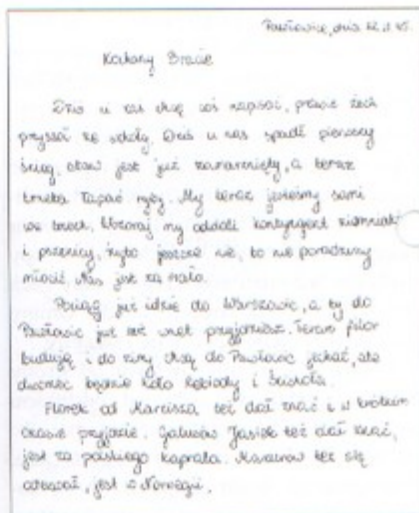 Pawłowice, dnia 12.X 45.
Kochany Bracie
Dziś u nas chcę coś napisać, prawie żech
przyszoł ze szkoły. Dziś u nas spadł pierwszy
śnieg, staw jest już zamarznięty, a teraz
trzeba łapać ryby. My teraz jesteśmy sami
we troch. Wczoraj my oddali kontyngent ziemniaki
i pszenicy, żyto jeszcze nie, bo nie poradzymy
młócić. Nas jest za mało.
Pociąg już idzie do Warszowic, a ty do
Pawłowic już też wnet przyjedziesz. Teraz filor
budują i do zimy chcą do Pawłowic jechać, ale
dworzec będzie koło i
Florek od Marcisza też dał znać i w krótkim
czasie przyjdzie. Galusów Jasiek też dał znać,
jest za polskiego kaprala. też się
odezwał, jest w Norwegii.